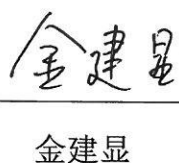 金建显
金建显